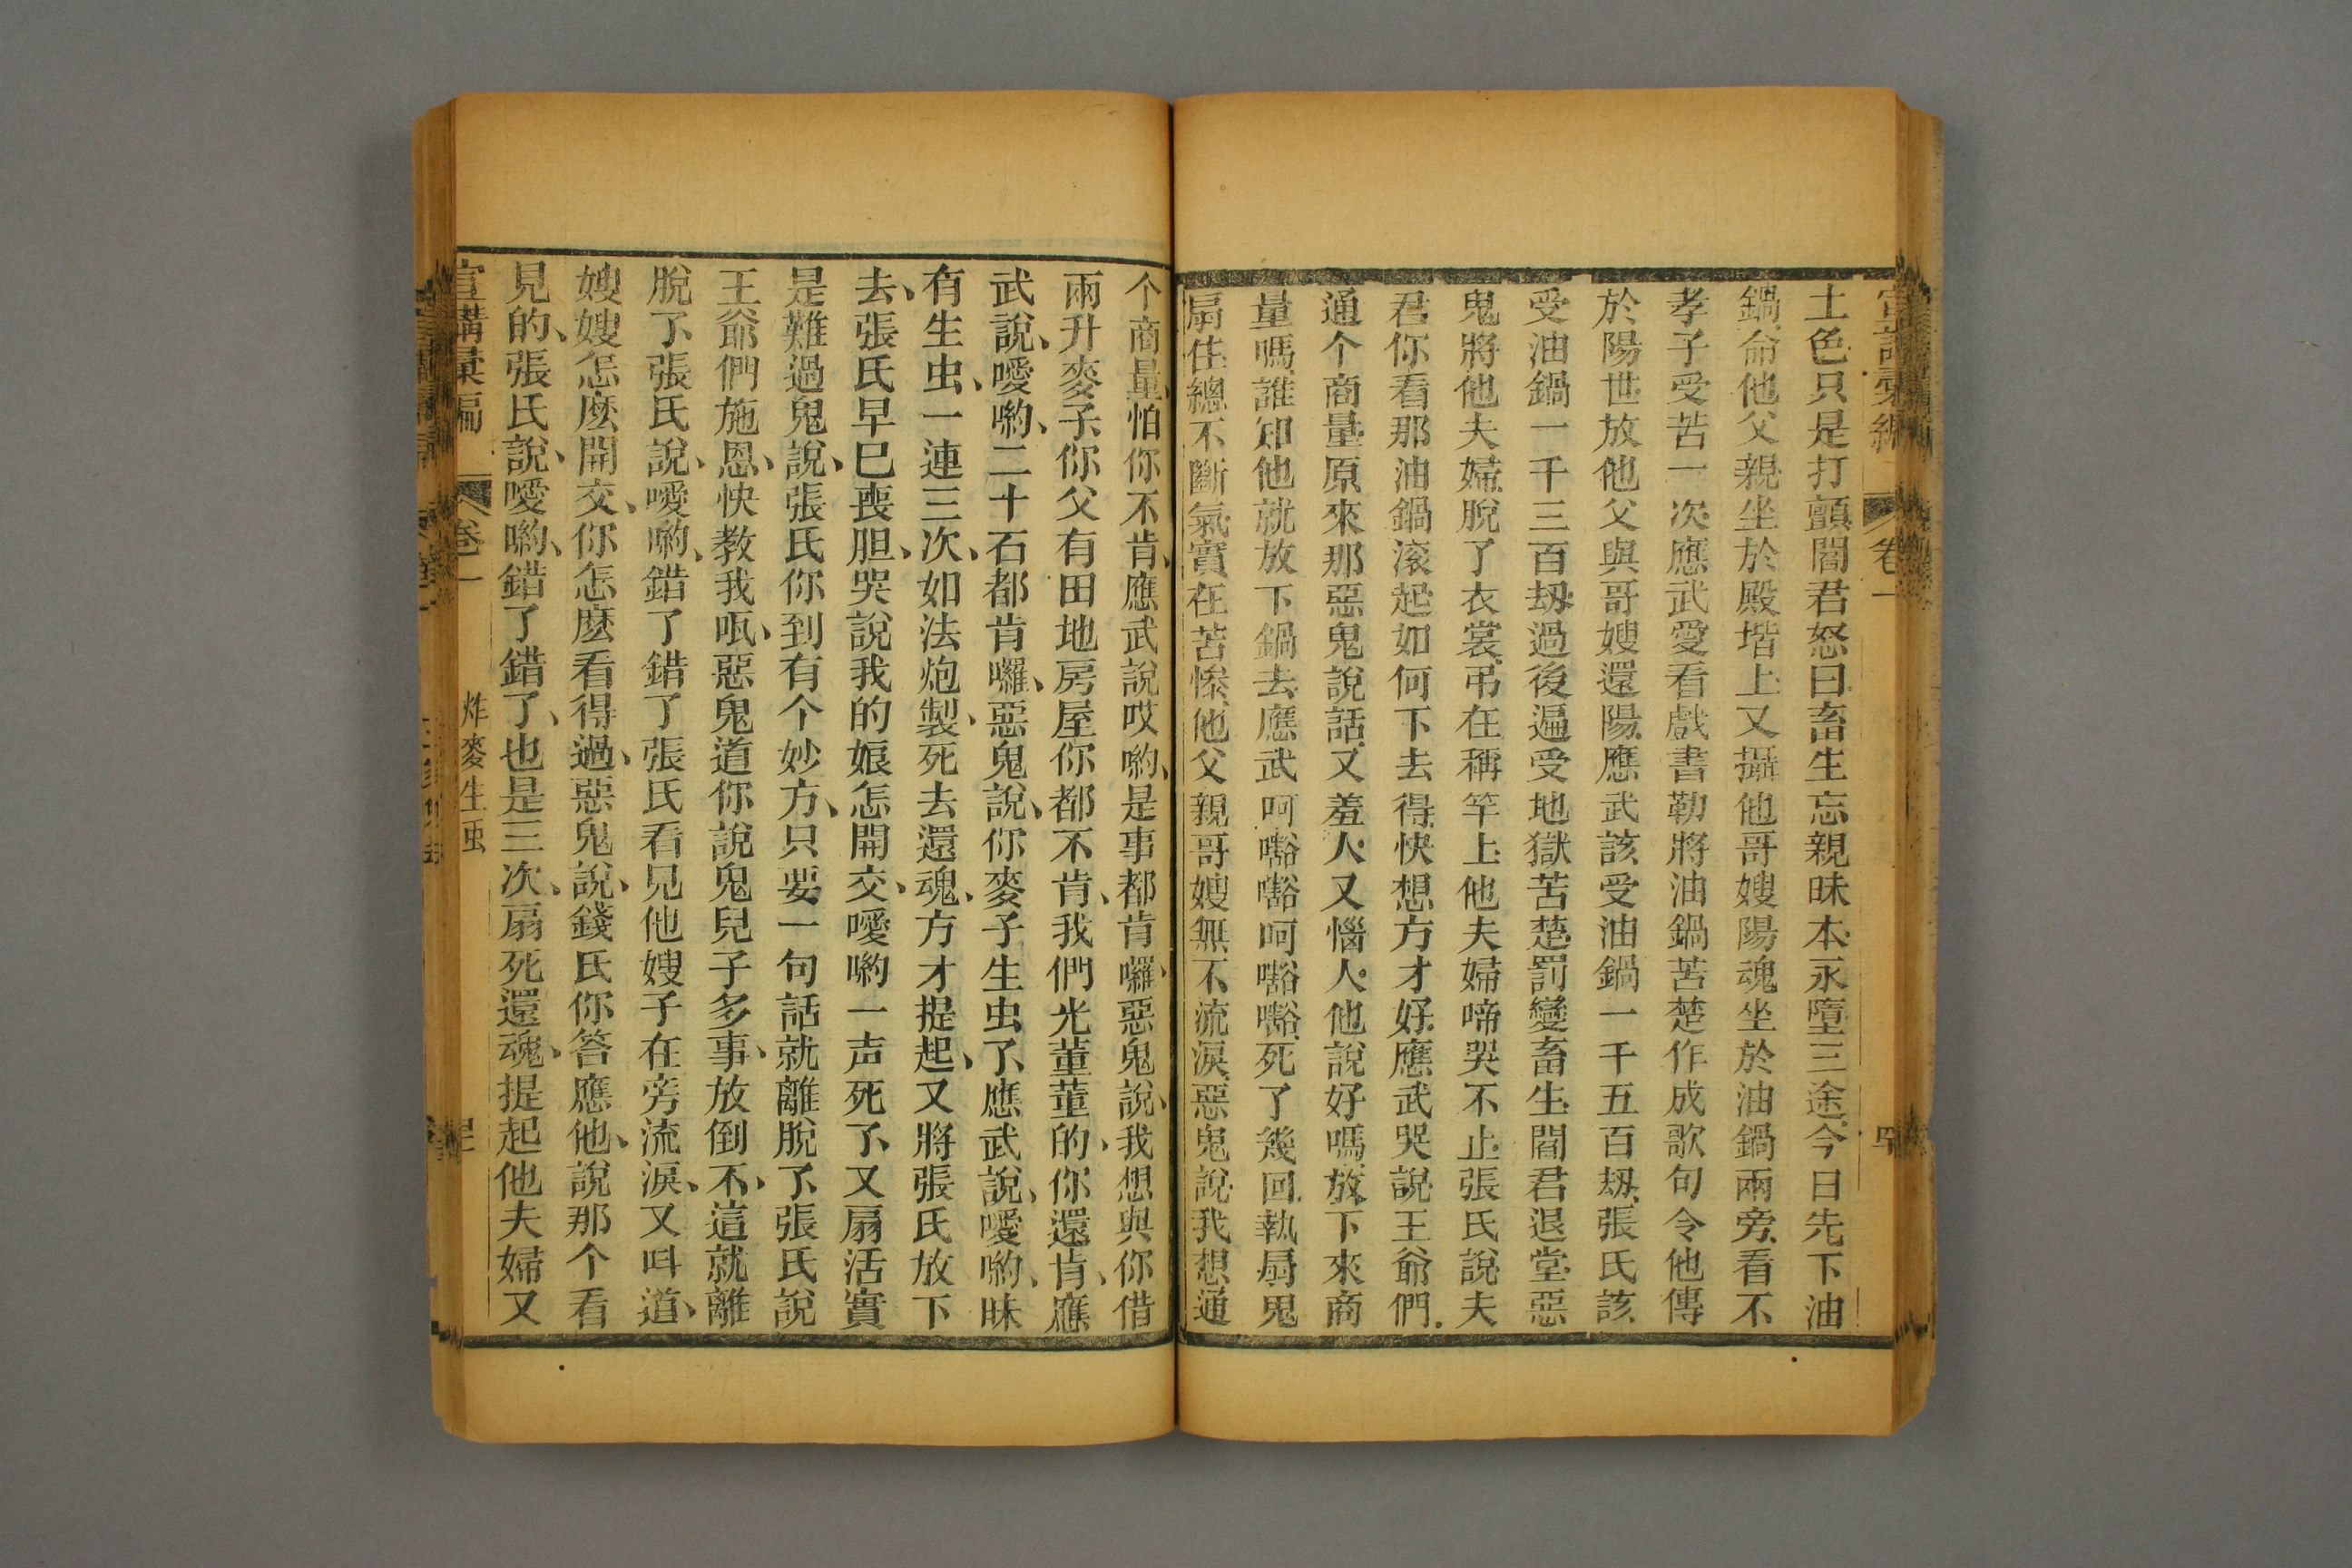 土色只是打顫閻君怒曰畜生忘親昧本永墮三途今日先下油
鍋命他父親坐於殿堦上又攝他哥嫂陽魂坐於油鍋兩旁看不
孝子受苦一次應武愛看戲書勒將油鍋苦楚作成歌句令他傳
於陽世放他父與哥嫂還陽應武該受油鍋一千五百刼張氏該
受油鍋一千三百刼過後遍受地獄苦楚罰變畜生閻君退堂惡
鬼將他夫婦脫了衣裳弔在稱竿上他夫婦啼哭不止張氏說夫
君你看那油鍋滚起如何下去得快想方才好應武哭說王爺們
通个商量原來那惡鬼說話又羞人又惱人他說好嗎放下來商
量嗎誰知他就放下鍋去應武呵㗭㗭呵㗭㗭死了幾回執扇鬼
扇住總不斷氣實在苦慘他父親哥嫂無不流淚惡鬼說我想通
个商量怕你不肯應武說哎喲是事都肯囉惡鬼說我想與你借
兩升麥子你父有田地房屋你都不肯我們光董董的你還肯應
武說噯喲二十石都肯囉惡鬼說你麥子生虫了應武說噯喲昧
有生虫一連三次如法炮製死去還魂方才提起又將張氏放下
去張氏早已喪胆哭說我的娘怎開交噯喲一声死了又扇活實
是難過鬼說張氏你到有个妙方只要一句話就離脫了張氏說
王爺們施恩快教我呱惡鬼道你說鬼兒子多事放倒不這就離
脫了張氏說噯喲錯了錯了張氏看見他嫂子在旁流淚又呌道
嫂嫂怎麽開交你怎麽看得過惡鬼說錢氏你答應他說那个看
見的張氏說噯喲錯了錯了也是三次扇死還魂提起他夫婦又
宣講彙編 卷一 炸麥生虫